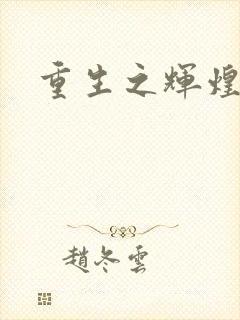 重生之輝煌
趙冬雲